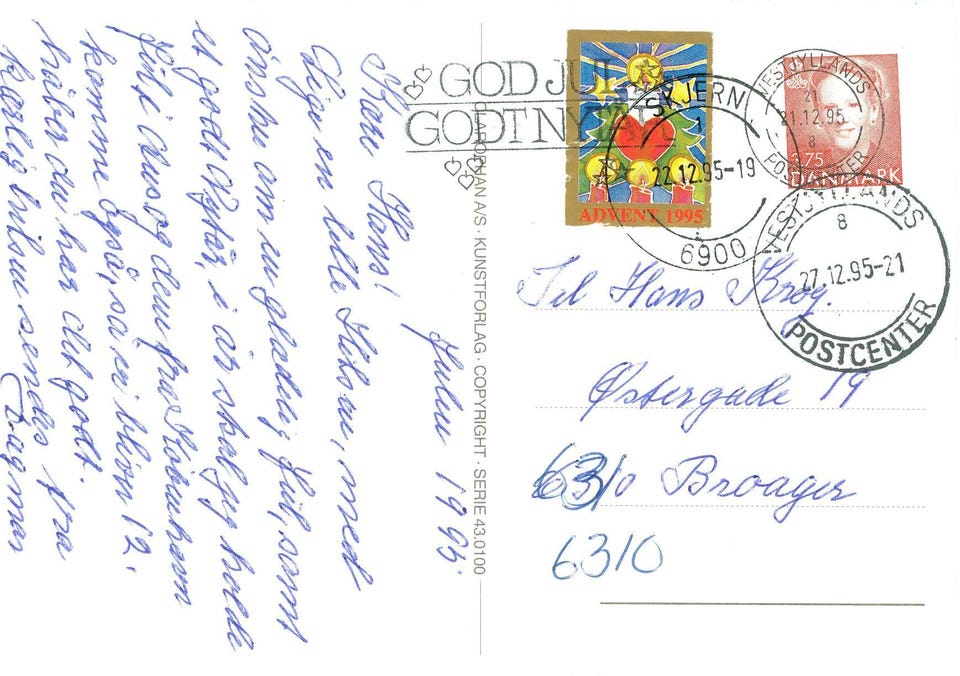 Julen 1995.
Kære Hans!
Lige en lille Hilsen, med
ønske om en glædelig Jul, samt
et godt Nytår, i år skal jeg holde
Jul i hus og dem fra København
kommer også, så vi bliver 12.
håber du har det godt.
Kærlig hilsen sendes fra
Dagmar
OLAROPHAN A/S · KUNSTFORLAG · COPYRIGHT · SERIE 43.0100
GOD JUL
GODT NYTÅR
ADVENT 1995
SKJERN
22.12.95-19
6900
VESTJYLLANDS
21.12.95
8
POSTCENTER
3.75
DANMARK
VESTJYLLANDS
8
27.12.95-21
POSTCENTER
Til Hans Krog.
Østergade 19
6310 Broager
6310